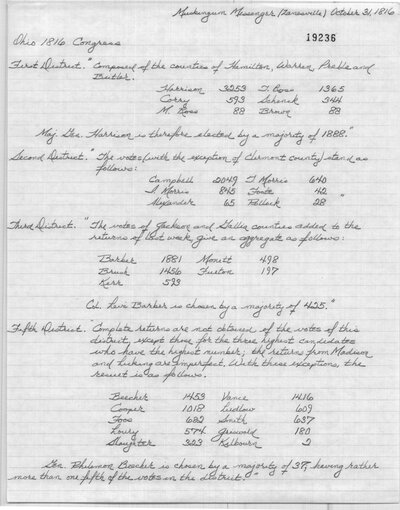 Muskingum Messenger (Zanesville) October 31, 1816
19236
Ohio 1816 Congress
First District. "Composed of the counties of Hamilton, Warren, Preble and
Butler.
Harrison 3253 T. Ross 1365
Corry 593 Schenck 344
M. Ross 88 Brown 88
Maj. Gen. Harrison is therefore elected by a majority of 1888."
Second District. "The votes (with the exception of Clermont county) stand as
follows:
Campbell 2049 T. Morris 640
I. Morris 845 Foote 42
Alexander 65 Pollock 28 "
Third District. "The votes of Jackson and Gallia counties added to the
returns of last week, give an aggregate as follows:
Barker 1881 Monett 498
Brush 1456 Fuston 197
Kerr 593
Col. Levi Barker is chosen by a majority of 425."
Fifth District. Complete returns are not obtained of the votes of this
district, except those for the three highest candidates
who have the highest number; the returns from Madison
and Licking are imperfect. With these exceptions, the
result is as follows.
Beecher 1453 Vance 1416
Cooper 1018 Ludlow 609
Foos 682 Smith 637
Loury 574 Griswold 180
Slaughter 323 Kilbourn 2
Gen. Philemon Beecher is chosen by a majority of 37, having rather
more than one fifth of the votes in the district."